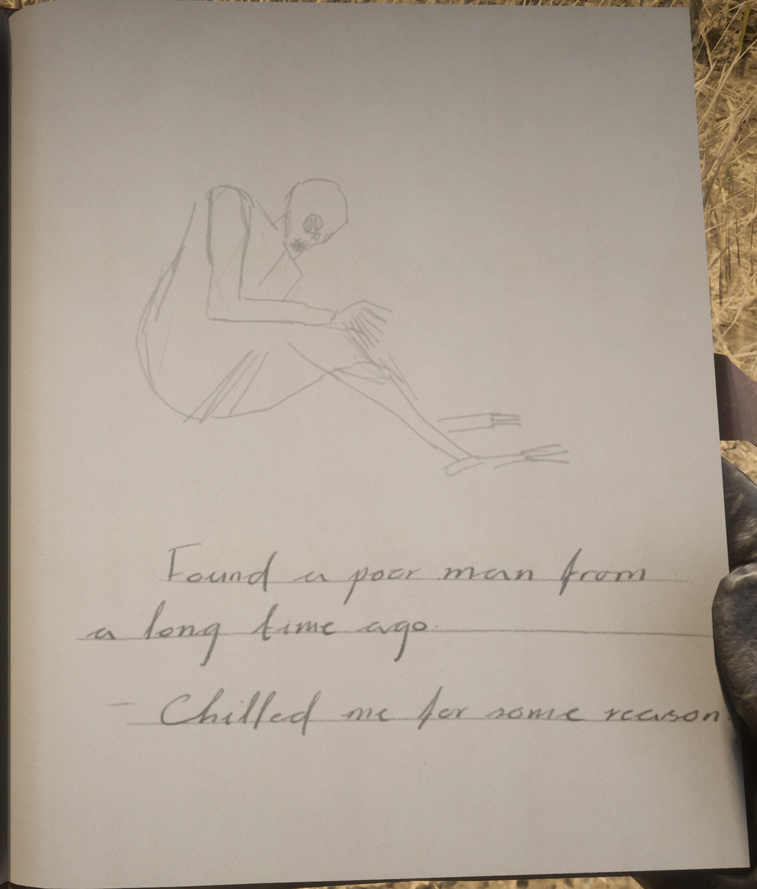 Found a poor man from
a long time ago.
- Chilled me for some reason.